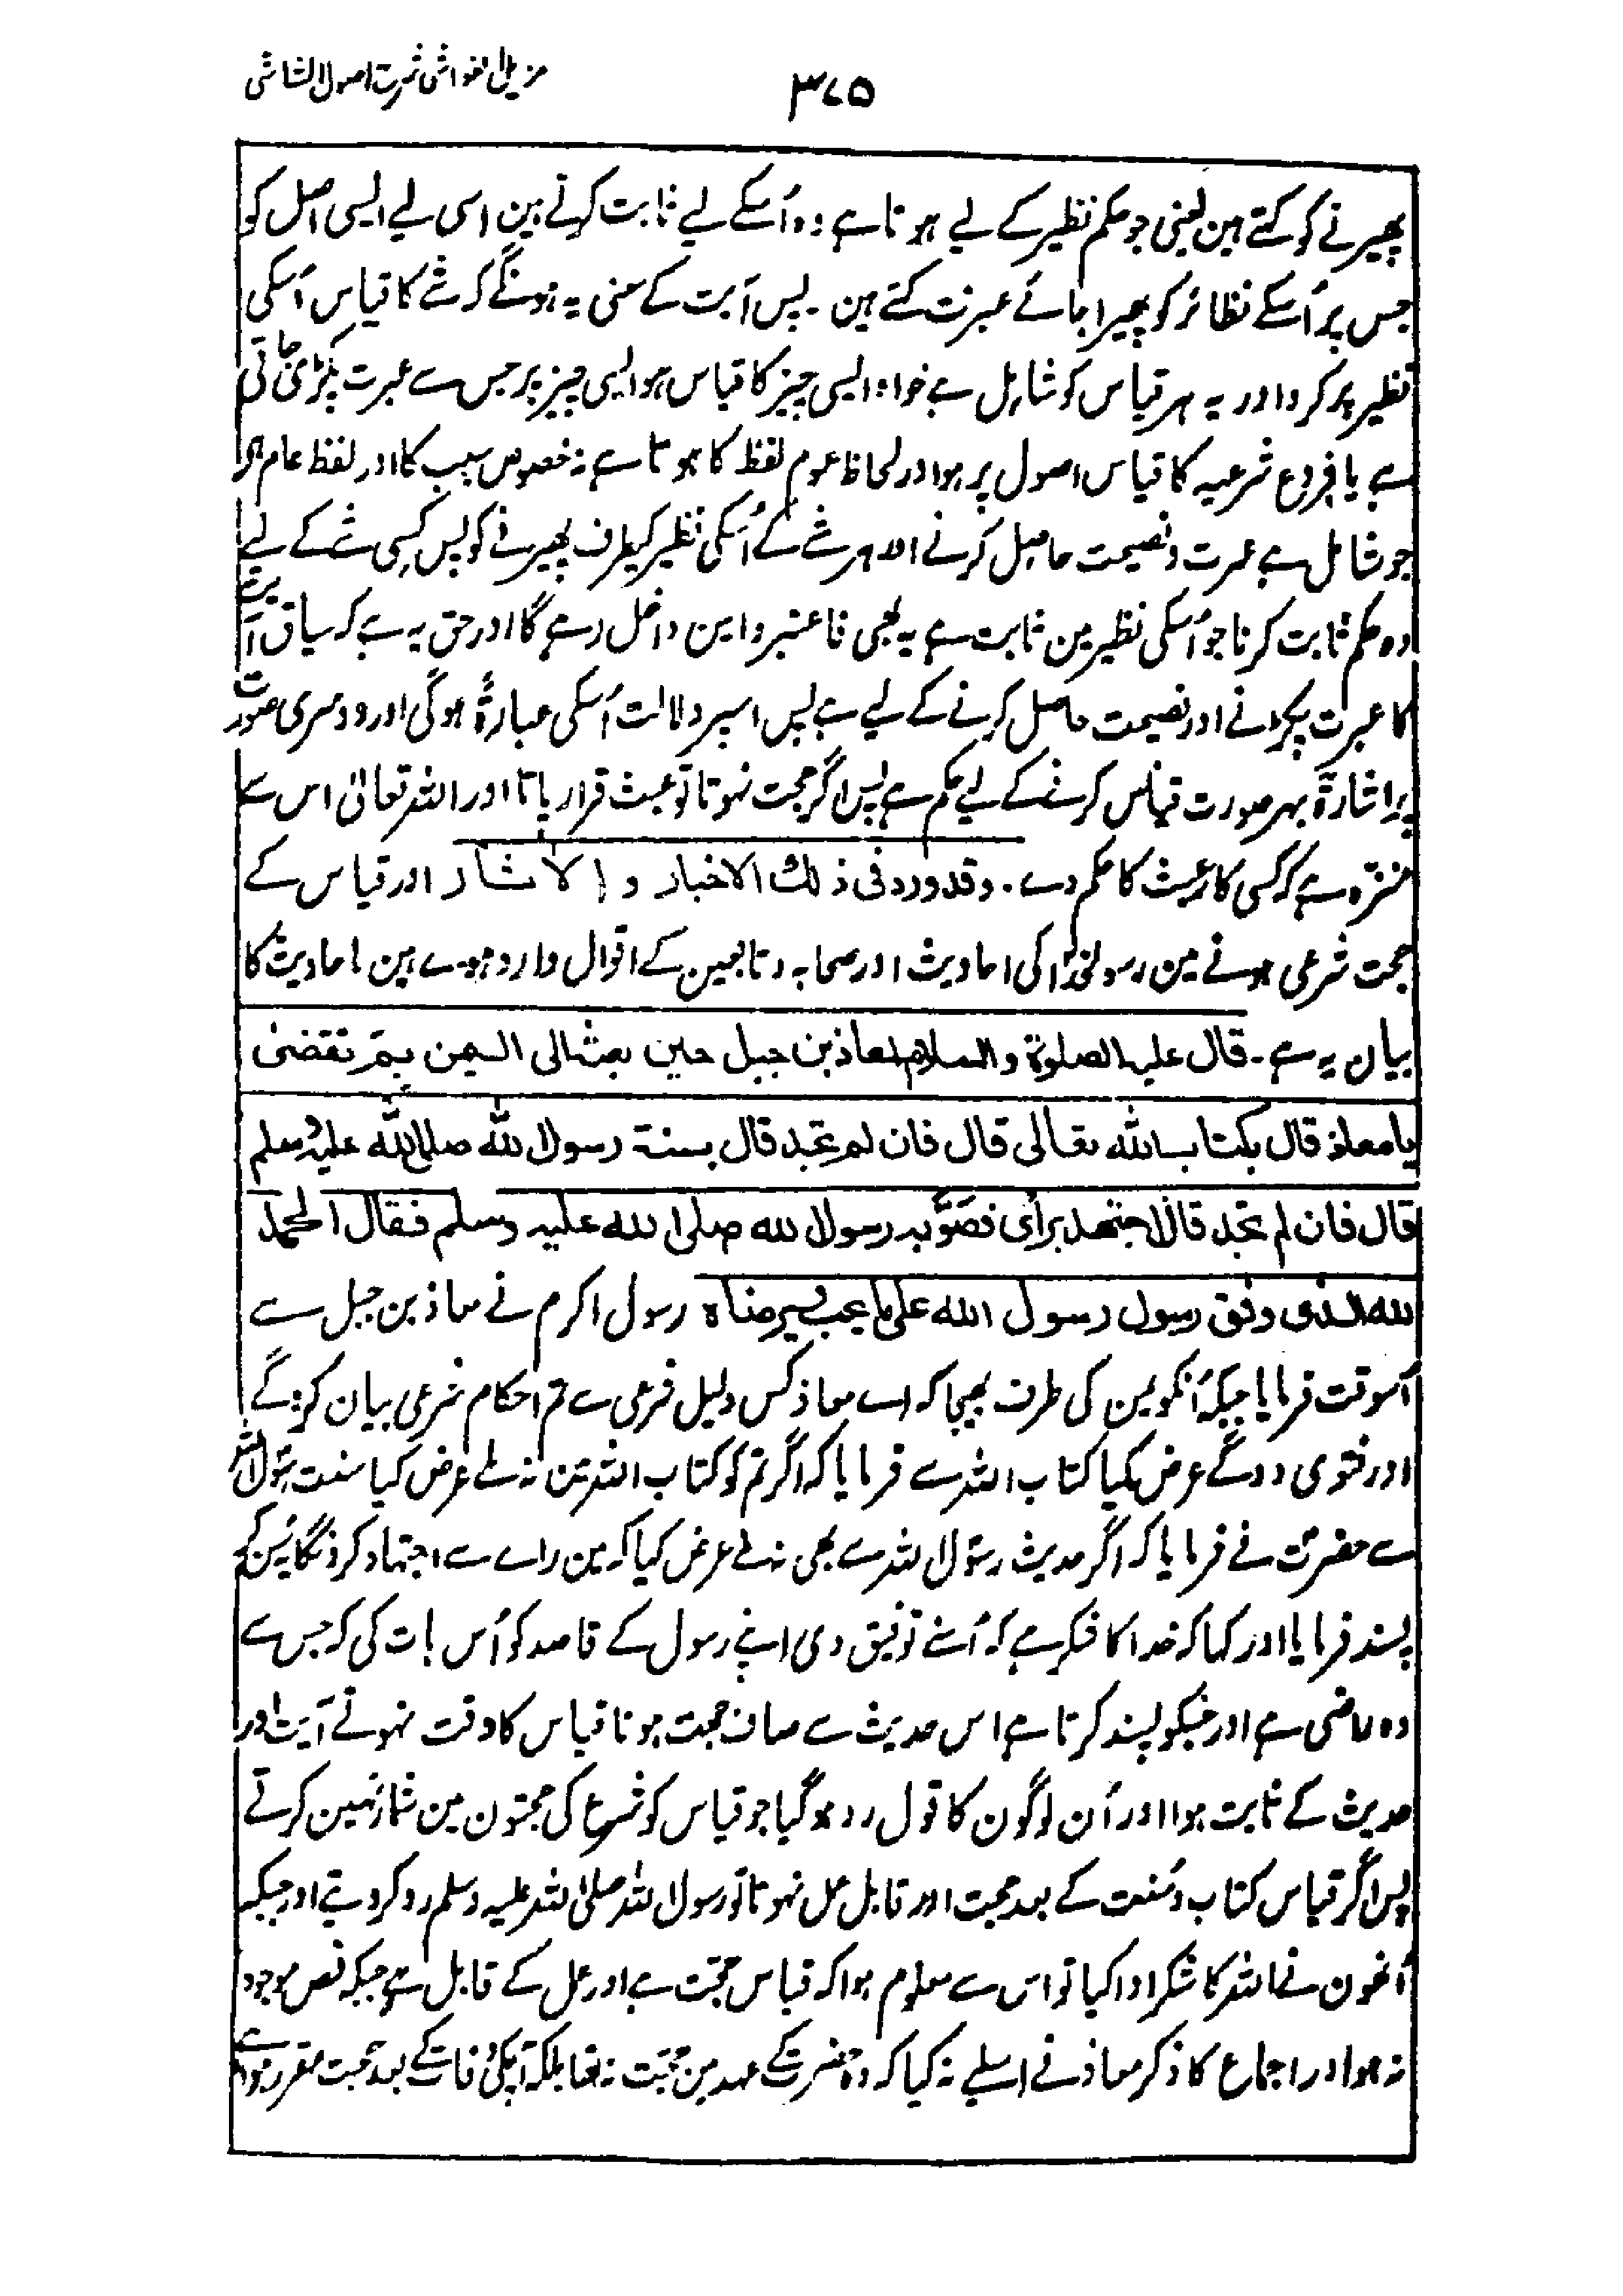 مزیل الغواشی شرح اصول الشاشی
۳۷۵
پھیرنے کو کہتے ہین یعنی جو حکم نظیر کے لیے ہوتا ہے وہ اُسکے لیے ثابت کرتے ہین اسی لیے ایسی اصل کو
جس پر اُسکے نظائر کو پھیرا جائے عبرت کہتے ہین۔ پس آیت کے معنی یہ ہونگے کہ شے کا قیاس اُسکی
نظیر پر کرو اور یہ ہر قیاس کو شامل ہے خواہ ایسی چیز کا قیاس ہو ایسی چیز پر جس سے عبرت پکڑی جاتی
ہے یا فروع شرعیہ کا قیاس اصول پر ہو اور لحاظ عموم لفظ کا ہوتا ہے نہ خصوص سبب کا اور لفظ عام ہی
جو شامل ہے عبرت و نصیحت حاصل کرنے اور ہر شے کے اُسکی نظیر کیطرف پھیرنے کو پس کسی شے کے لیے
وہ حکم ثابت کرنا جو اُسکی نظیر مین ثابت ہے یہ بھی فاعتبروا مین داخل رہے گا اور حق یہ ہے کہ سیاق آیت
کا عبرت پکڑنے اور نصیحت حاصل کرنے کے لیے ہے پس اسپر دلالت اُسکی عبارۃً ہوگی اور دوسری صورت
پر اشارۃً بہر صورت قیاس کرنے کے لیے حکم ہے پس اگر حجت نہوتا تو عبث قرار پاتا اور اللہ تعالیٰ اس سے
منزہ ہے کہ کسی کار عبث کا حکم دے۔ وقد ورد فی ذلك الاخبار و الاٰثار اور قیاس کے
حجت شرعی ہونے مین رسولخداؐ کی احادیث اور صحابہ و تابعین کے اقوال وارد ہوے ہین احادیث کا
بیان یہ ہے۔ قال علیہ الصلوۃ والسلام لمعاذ بن جبل حین بعثہ الی الیمن بم تقضیٰ
یا معاذ قال بکتاب اللہ تعالی قال فان لم تجد قال بسنۃ رسول اللہ صلی اللہ علیہ وسلم
قال فان لم تجد قال اجتھد برأی فصوّبہ رسول اللہ صلی اللہ علیہ وسلم فقال الحمد
للہ الذی وفق رسول رسول اللہ علی ما یحب و یرضاہ رسول اکرم نے معاذ بن جبل سے
اُسوقت فرمایا جبکہ اُنکو یمن کی طرف بھیجا کہ اے معاذ کس دلیل شرعی سے تم احکام شرعی بیان کروگے
اور فتوی دوگے عرض کیا کتاب اللہ سے فرمایا کہ اگر تم کو کتاب اللہ مین نہ ملے عرض کیا سنت رسول اللہ
سے حضرت نے فرمایا کہ اگر حدیث رسول اللہ سے بھی نہ ملے عرض کیا کہ مین راے سے اجتہاد کرونگا یہ سُن کر
پسند فرمایا اور کہا کہ خدا کا شکر ہے کہ اُسنے توفیق دی اپنے رسول کے قاصد کو اُس بات کی کہ جس سے
وہ راضی ہے اور جسکو پسند کرتا ہے اس حدیث سے صاف حجت ہونا قیاس کا وقت نہونے آیت اور
حدیث کے ثابت ہوا اور اُن لوگون کا قول رد ہوگیا جو قیاس کو شرع کی حجتون مین شمار نہین کرتے
پس اگر قیاس کتاب و سُنت کے بعد حجت اور قابل عمل نہوتا تو رسول اللہ صلی اللہ علیہ وسلم رد کر دیتے اور جبکہ
اُنھون نے اللہ کا شکر ادا کیا تو اس سے معلوم ہوا کہ قیاس حجت ہے اور عمل کے قابل ہے جبکہ نص موجود
نہ ہو اور اجماع کا ذکر معاذ نے اسلیے نہ کیا کہ وہ حضرت کے عہد مین حجت نہ تھا بلکہ آپکی وفات کے بعد حجت مقرر ہوا ہے